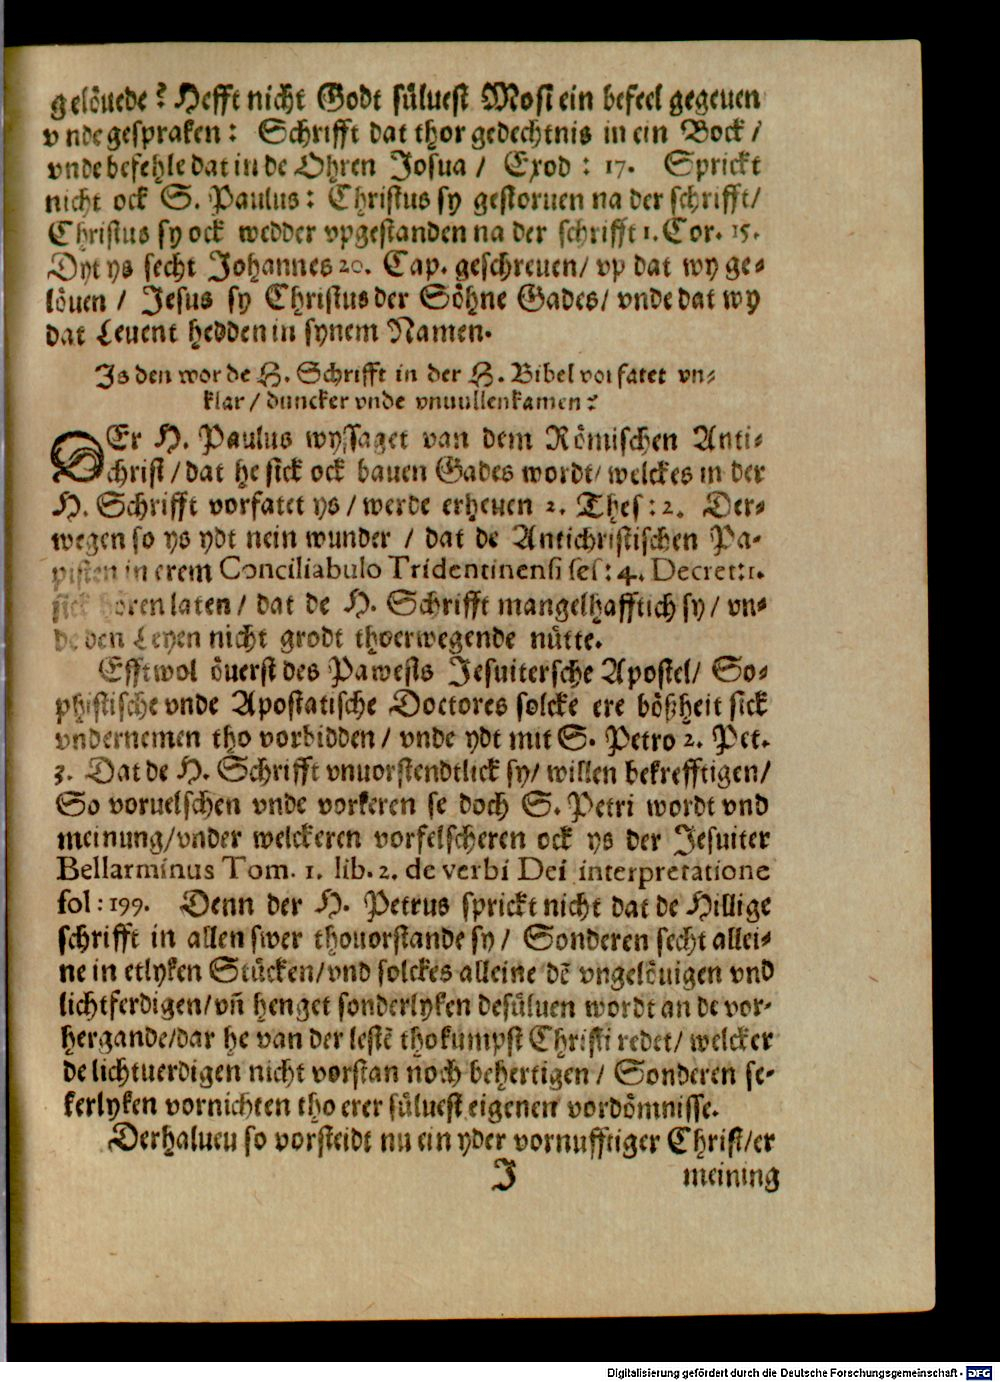 gelöuede? Hefft nicht Godt süluest Mosi ein befeel gegeuen
vnde gespraken: Schrifft dat thor gedechtnis in ein Bock /
vnde befehle dat in de Ohren Josua / Exod: 17. Sprickt
nicht ock S. Paulus: Christus sy gestoruen na der schrifft/
Christus sy ock wedder vpgestanden na der schrifft 1. Cor. 15.
Dyt ys secht Johannes 20. Cap. geschreuen/ vp dat wy ge-
löuen / Jesus sy Christus der Söhne Gades/ vnde dat wy
dat Leuent hedden in synem Namen.
Js den wor de H. Schrifft in der H. Bibel vorfatet vn-
klar / duncker vnde vnuullenkamen?
DEr H. Paulus wyssaget van dem Römischen Anti-
christ / dat he sick ock bauen Gades wordt/ welckes in der
H. Schrifft vorfatet ys / werde erheuen 2. Thes: 2. Der-
wegen so ys ydt nein wunder / dat de Antichristischen Pa-
pisten in erem Conciliabulo Tridentinensi ses: 4. Decret: 1.
sick hören laten / dat de H. Schrifft mangelhafftich sy / vn-
de den Leyen nicht grodt thoerwegende nütte.
Efft wol öuerst des Pawests Jesuitersche Apostel/ So-
phistische vnde Apostatische Doctores solcke ere bößheit sick
vndernemen tho vorbidden / vnde ydt mit S. Petro 2. Pet.
3. Dat de H. Schrifft vnuorstendtlick sy/ willen bekrefftigen/
So voruelschen vnde vorkeren se doch S. Petri wordt vnd
meinung/vnder welckeren vorfelscheren ock ys der Jesuiter
Bellarminus Tom. 1. lib. 2. de verbi Dei interpretatione
fol: 199. Denn der H. Petrus sprickt nicht dat de Hillige
schrifft in allen swer thouorstande sy / Sonderen secht allei-
ne in etlyken Stücken/vnd solckes alleine dē vngelöuigen vnd
lichtferdigen/vn̄ henget sonderlyken desüluen wordt an de vor-
hergande/dar he van der lestē thokumpst Christi redet/ welcker
de lichtuerdigen nicht vorstan noch behertigen / Sonderen se-
kerlyken vornichten tho erer süluest eigenen vordömnisse.
Derhaluen so vorsteidt nu ein yder vornufftiger Christ/er
J meining
Digitalisierung gefördert durch die Deutsche Forschungsgemeinschaft - DFG